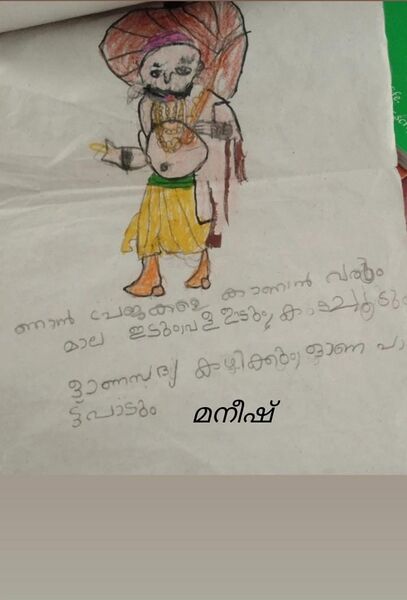 ഞാൻ പ്രജകളെ കാണാൻ വരും
മാല ഇടും വള ഇടും
ഓണസദ്യ കഴിക്കും ഓണ പാ
ട്ട്പാടും മനീഷ്